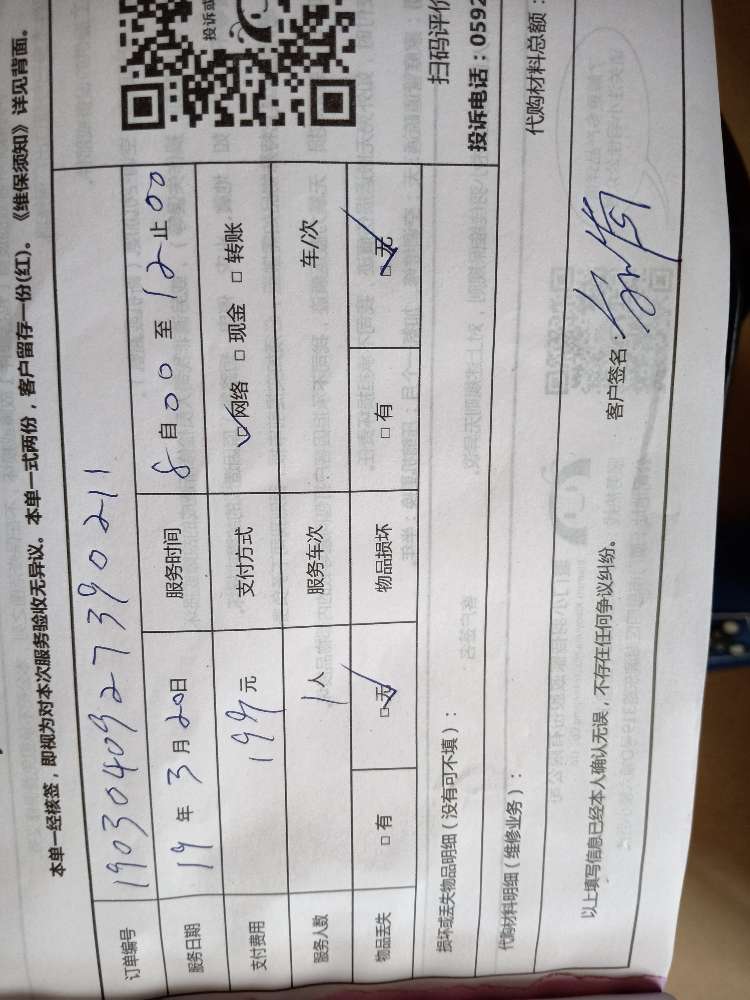 本单一经核签，即视为对本次服务验收无异议。本单一式两份，客户留存一份(红)。《维保须知》详见背面。
订单编号 190304092739 0211
服务日期 19 年 3 月 20 日 服务时间 8 自 00 至 12 止 00
支付费用 199 元 支付方式 ☑网络 □现金 □转账
服务人数 1 人 服务车次 车/次
物品丢失 □有 ☑无 物品损坏 □有 ☑无
损坏或丢失物品明细（没有可不填）：
扫码评价
投诉电话：0592
代购材料明细（维修业务）：
代购材料总额：
以上填写信息已经本人确认无误，不存在任何争议纠纷。
客户签名：
投诉或